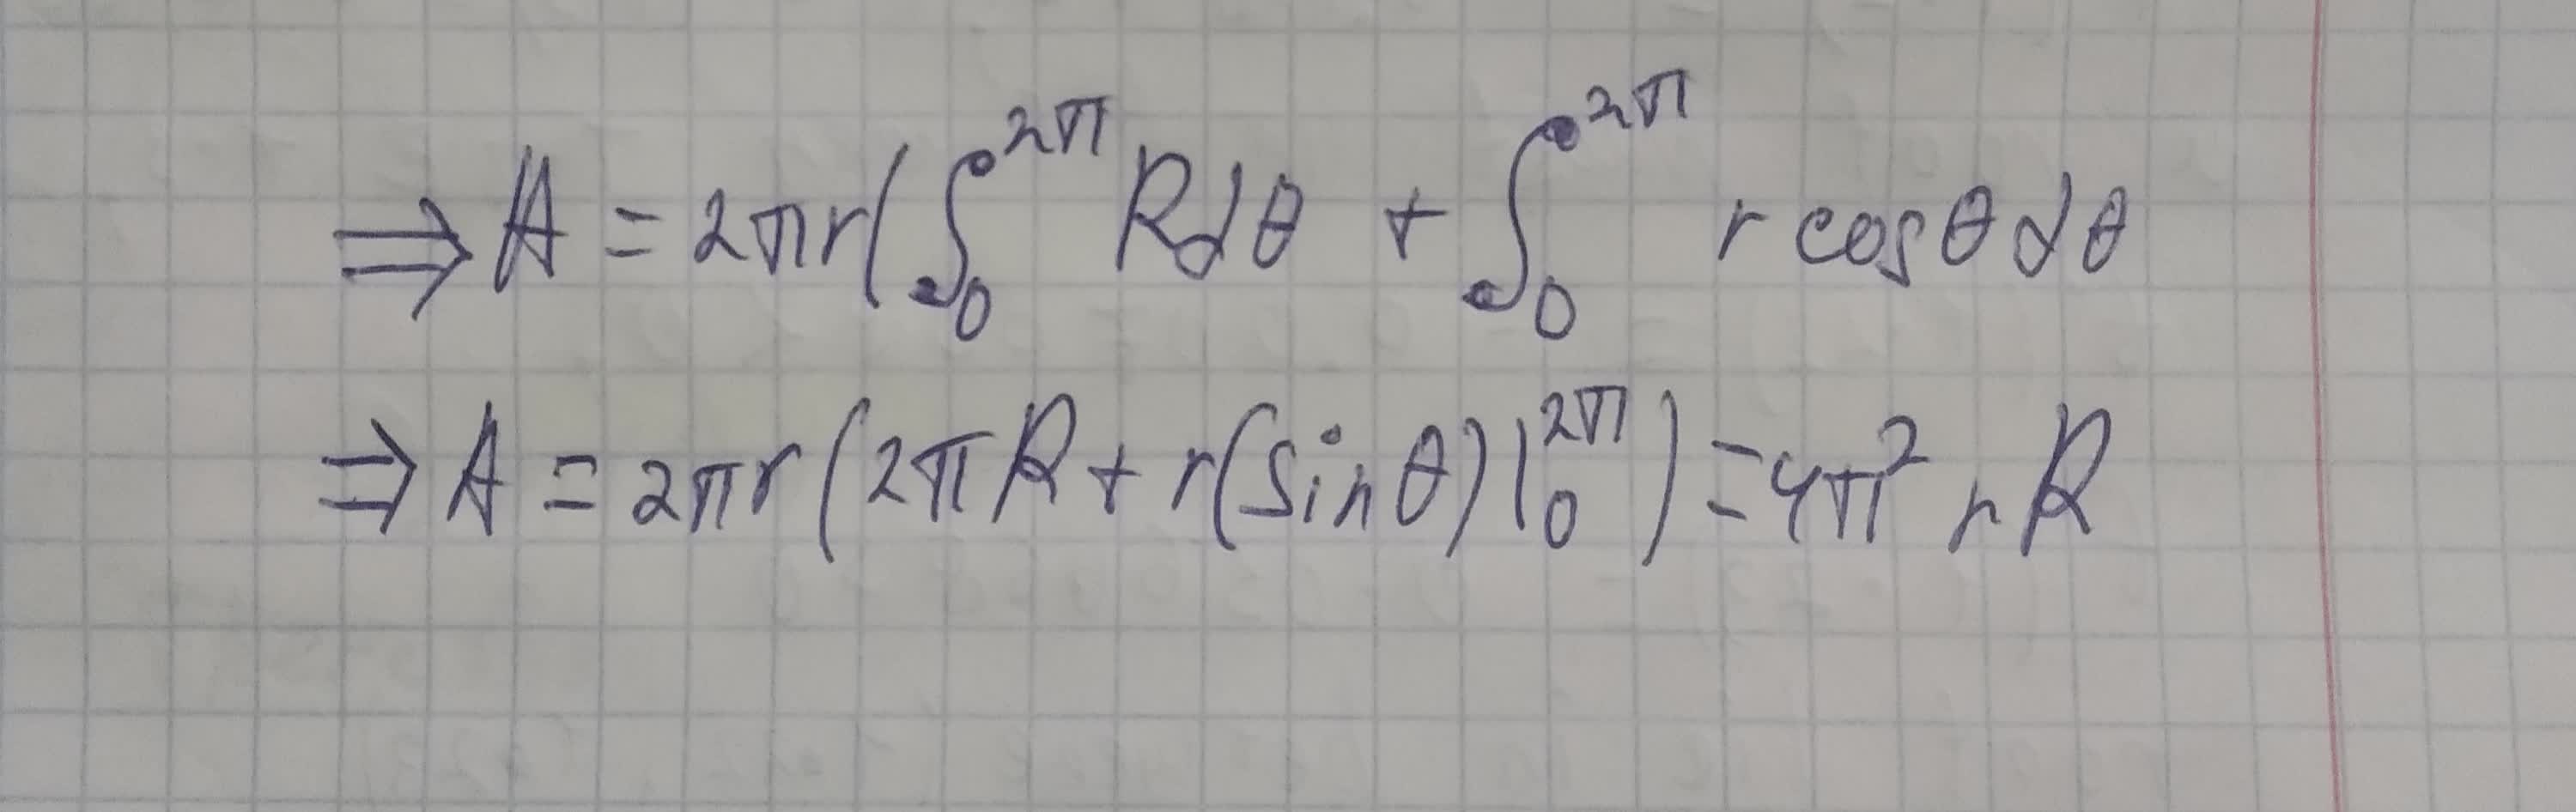 ⇒ A = 2πr(∫₀^2π R dθ + ∫₀^2π r cosθ dθ
⇒ A = 2πr(2πR + r(sinθ)|₀^2π) = 4π² rR